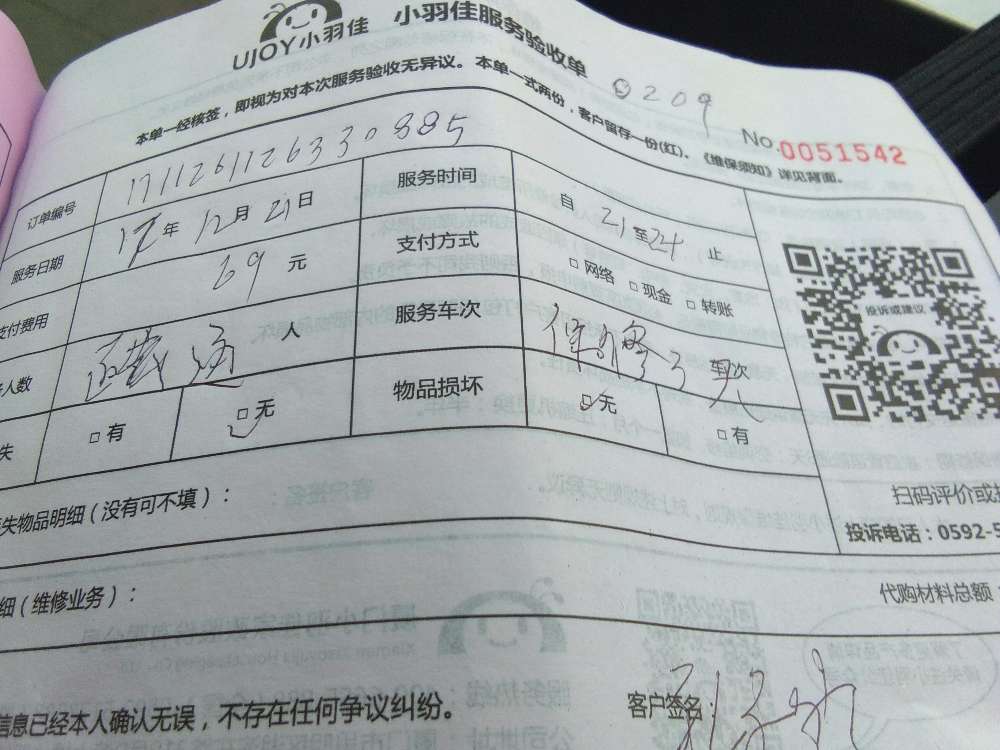 UJOY小羽佳 小羽佳服务验收单
0209
本单一经核签，即视为对本次服务验收无异议。本单一式两份，客户留存一份(红)。《维保须知》详见背面。
No.0051542
订单编号 171126112633 0885
服务时间 自 21 至 24 止
服务日期 17年 12月 21日
支付方式 □网络 □现金 □转账
支付费用 69 元
服务车次 车次
人数 人
失 □有 □无
物品损坏 □无 □有
投诉或建议
失物品明细（没有可不填）：
扫码评价或
投诉电话：0592-5
细（维修业务）：
代购材料总额
信息已经本人确认无误，不存在任何争议纠纷。
客户签名：